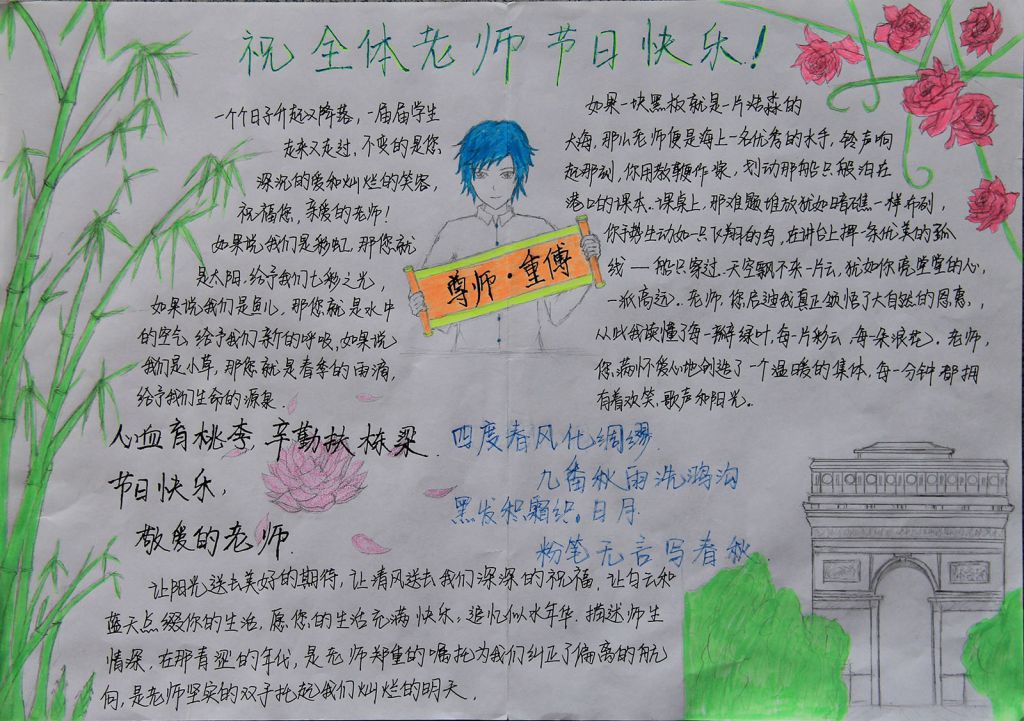 祝全体老师节日快乐!
一个个日子升起又降落,一届届学生
走来又走过,不变的是您
深沉的爱和灿烂的笑容,
祝福您,亲爱的老师!
如果说我们是彩虹,那您就
是太阳,给予我们七彩之光,
如果说我们是鱼儿,那您就是水中
的空气,给予我们新的呼吸,如果说
我们是小草,那您就是春季的雨滴,
给予我们生命的源泉.
尊师·重傅
如果一块黑板就是一片浩淼的
大海,那么老师便是海上一名优秀的水手,铃声响
起那刻,你用教鞭作桨,划动那船只般泊在
港口的课本.课桌上,那难题堆放犹如暗礁一样布列,
你手势生动如一只飞翔的鸟,在讲台上挥一条优美的弧
线——船只穿过.天空飘不来一片云,犹如你亮堂堂的心,
一派高远.老师,您启迪我真正领悟了大自然的恩惠,
从此我读懂了每一瓣绿叶,每一片彩云,每一朵浪花,老师,
您满怀爱心地创造了一个温暖的集体,每一分钟都拥
有着欢笑、歌声和阳光.
心血育桃李,辛勤扶栋梁.
节日快乐,
敬爱的老师.
四度春风化绸缪.
九番秋雨洗鸿沟
黑发积霜织。日月.
粉笔无言写春秋.
让阳光送去美好的期待,让清风送去我们深深的祝福,让白云和
蓝天点缀你的生活,愿您的生活充满快乐,追忆似水年华.描述师生
情深,在那青涩的年代,是老师郑重的嘱托为我们纠正了偏离的航
向,是老师坚实的双手托起我们灿烂的明天.